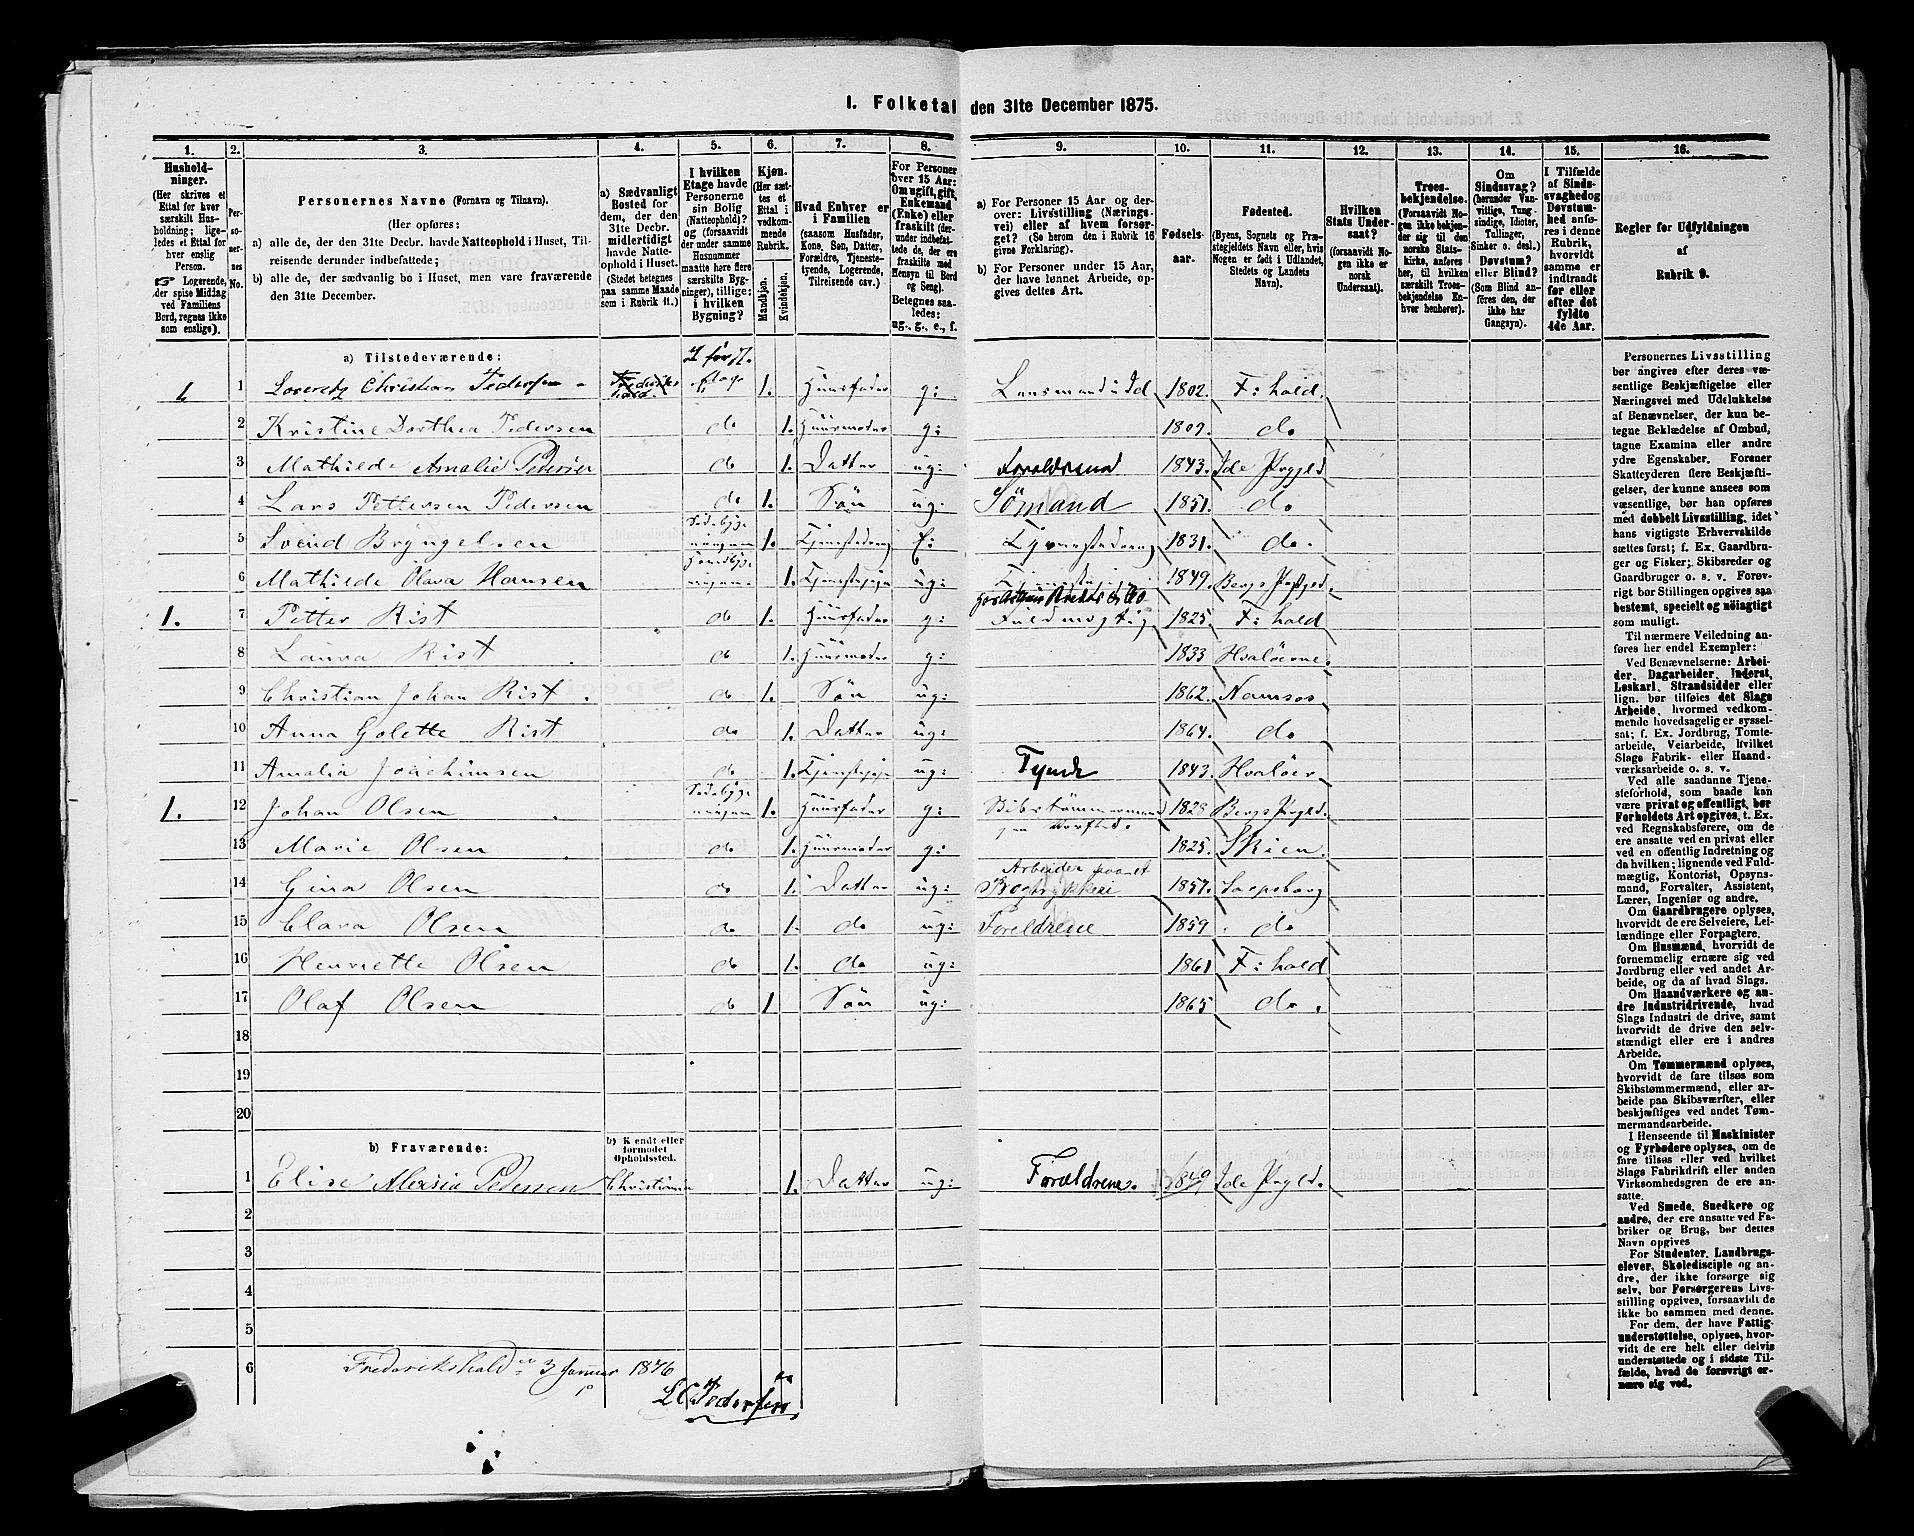 1. Folketal den 31te December 1875.
1. 2. 3. 4. 5. 6. 7. 8. 9. 10. 11. 12. 13. 14. 15. 16.
Husholdninger.
(Her skrives et Ettal for hver særskilt Husholdning; ligeledes et Ettal for hver enslig Person.
☞ Logerende, der spise Middag ved Familiens Bord, regnes ikke som enslige).
Personernes No.
Personernes Navne (Fornavn og Tilnavn).
(Her opføres:
a) alle de, der den 31te Decbr. havde Natteophold i Huset, Tilreisende derunder indbefattede;
b) alle de, der sædvanlig bo i Huset, men vare fraværende den 31te December.
a) Sædvanligt Bosted for dem, der den 31te Decbr. midlertidigt havde Natteophold i Huset. (Stedet betegnes paa samme Maade som i Rubrik 11.)
I hvilken Etage havde Personerne sin Bolig (Natteophold)? og (forsaavidt der under samme Husnummer maatte høre flere særskilte Bygninger), tillige: i hvilken Bygning?
Kjøn.
(Her sættes et Ettal i vedkommende Rubrik.
Mandkjøn.
Kvindekjøn.
Hvad Enhver er i Familien
(saasom Husfader, Kone, Søn, Datter, Forældre, Tjenestetyende, Logerende, Tilreisende osv.)
For Personer over 15 Aar: Om ugift, gift, Enkemand (Enke) eller fraskilt (derunder indbefattede de, der ere fraskilte med Hensyn til Bord og Seng). Betegnes saaledes: ug., g., e., f.
a) For Personer 15 Aar og derover: Livsstilling (Næringsvei) eller af hvem forsørget? (Se herom den i Rubrik 16 givne Forklaring).
b) For Personer under 15 Aar, der have lønnet Arbeide, opgives dettes Art.
Fødselsaar.
Fødested.
(Byens, Sognets og Præstegjeldets Navn eller, hvis Nogen er født i Udlandet, Stedets og Landets Navn).
Hvilken Stats Undersaat?
(forsaavidt Nogen ikke er norsk Undersaat).
Troesbekjendelse.
(Forsaavidt Nogen ikke bekjender sig til den norske Statskirke, anføres her, til hvilken særskilt Troesbekjendelse Enhver henhører).
Om Sindssvag? (herunder Vanvittige, Tungsindige, Idioter, Tullinger, Sinker o. desl.). Døvstum? eller Blind? (Som Blind anføres den, der ikke har Gangsyn).
I Tilfælde af Sindssvaghed og Døvstumhed anføres i denne Rubrik, hvorvidt samme er indtraadt før eller efter det fyldte 4de Aar.
Regler for Udfyldningen af Rubrik 9.
a) Tilstedeværende:
1 1 Lorentz Christian Pedersen Frederikshald 1 før 17. Etage 1. Huusfader g: Lensmand i Id 1802. F: hald.
2 Kristine Dorthea Pedersen do 1. Huusmoder g: 1809. do
3 Mathilde Amalie Pedersen do 1. Datter ug: Forældrene 1843. Ide Prgjld
4 Lars Pettersen Pedersen do 1. Søn ug: Sömand 1851. do
5 Svend Bryngelsen Sidebygningen 1. Tjenstedreng E: Tjenestedreng 1831. do.
6 Mathilde Olava Hansen Hovedbygningen 1. Tjenstepige ug: 1849. Bergs Prstgjld.
1. 7 Petter Rist do 1. Huusfader g: Fuldmægtig 1825. F: hald
8 Laura Rist do 1. Huusmoder g: 1833 Hvalöerne.
9 Christian Johan Rist do 1. Søn ug: 1862. Namsos
10 Anna Golette Rist do 1. Datter ug: 1864. do
11 Amalia Joachimsen do 1. Tjenstepige ug: Tyende 1843. Hvalöer
1. 12 Johan Olsen Sidebygningen 1. Huusfader g: Skibstømmermand paa Værfted. 1828 Bergs Prgld.
13 Marie Olsen do 1. Huusmoder g: 1825. Skien.
14 Gina Olsen do 1. Datter ug: Arbeider paa et Bogtrykkeri 1857. Sarpsborg
15 Clara Olsen do 1. do ug: Foreldrene 1859. do
16 Henriette Olsen do 1. do ug: 1861 F: hald
17 Olaf Olsen do 1 Søn ug: 1865 do.
18
19
20
b) Fraværende:
b) Kjendt eller formodet Opholdssted.
1 Elise Alexsia Pedersen Christiania 1. Datter ug: Forældrene. 1849 Ide Prgld.
2
3
4
5
6
Frederikshald den 3 Januar 1876
L C Pedersen
Personernes Livsstilling bør angives efter deres væsentlige Beskjæftigelse eller Næringsvei med Udelukkelse af Benævnelser, der kun betegne Beklædelse af Ombud, tagne Examina eller andre ydre Egenskaber. Forener Skatteyderen flere Beskjæftigelser, der kunne ansees som væsentlige, bør han opføres med dobbelt Livsstilling, idet hans vigtigste Erhvervskilde sættes først; f. Ex. Gaardbruger og Fisker; Skibsreder og Gaardbruger o. s. v. Forøvrigt bør Stillingen opgives saa bestemt, specielt og nøiagtigt som muligt.
Til nærmere Veiledning anføres her endel Exempler:
Ved Benævnelserne: Arbeider, Dagarbeider, Inderst, Løskarl, Strandsidder eller lign. bør tilføies det Slags Arbeide, hvormed vedkommende hovedsagelig er sysselsat; f. Ex. Jordbrug, Tomtearbeide, Veiarbeide, hvilket Slags Fabrik- eller Haandværksarbeide o. s. v.
Ved alle saadanne Tjenesteforhold, som baade kan være privat og offentligt, bør Forholdets Art opgives, t. Ex. ved Regnskabsførere, om de ere ansatte ved en privat eller ved en offentlig Indretning og da hvilken; lignende ved Fuldmægtig, Kontorist, Opsynsmand, Forvalter, Assistent, Lærer, Ingeniør og andre.
Om Gaardbrugere oplyses, hvorvidt de ere Selveiere, Leilændinge eller Forpagtere.
Om Husmænd, hvorvidt de fornemmelig ernære sig ved Jordbrug eller ved andet Arbeide, og da af hvad Slags.
Om Haandværkere og andre Industridrivende, hvad Slags Industri de drive, samt hvorvidt de drive den selvstændigt eller ere i andres Arbeide.
Om Tømmermænd oplyses, hvorvidt de fare tilsøs som Skibstømmermænd, eller arbeide paa Skibsværfter, eller beskjæftiges ved andet Tømmermandsarbeide.
I Henseende til Maskinister og Fyrbødere oplyses, om de fare tilsøs eller ved hvilket Slags Fabrikdrift eller anden Virksomhedsgren de ere ansatte.
Ved Smede, Snedkere og andre, der ere ansatte ved Fabriker og Brug, bør dettes Navn opgives
For Studenter, Landbrugselever, Skoledisciple og andre, der ikke forsørge sig selv, bør Forsørgerens Livsstilling opgives, forsaavidt de ikke bo sammen med denne.
For dem, der have Fattigunderstøttelse, oplyses, hvorvidt de ere helt eller delvis understøttede og i sidste Tilfælde, hvad de forøvrigt ernære sig ved.